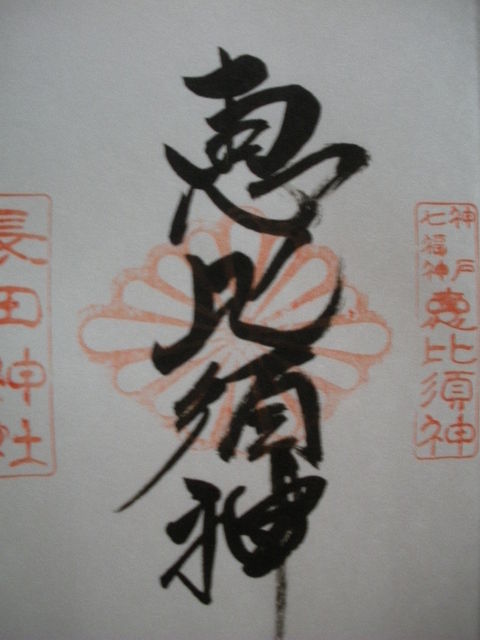 神戸七福神
恵比須神
恵比須神
長田神社